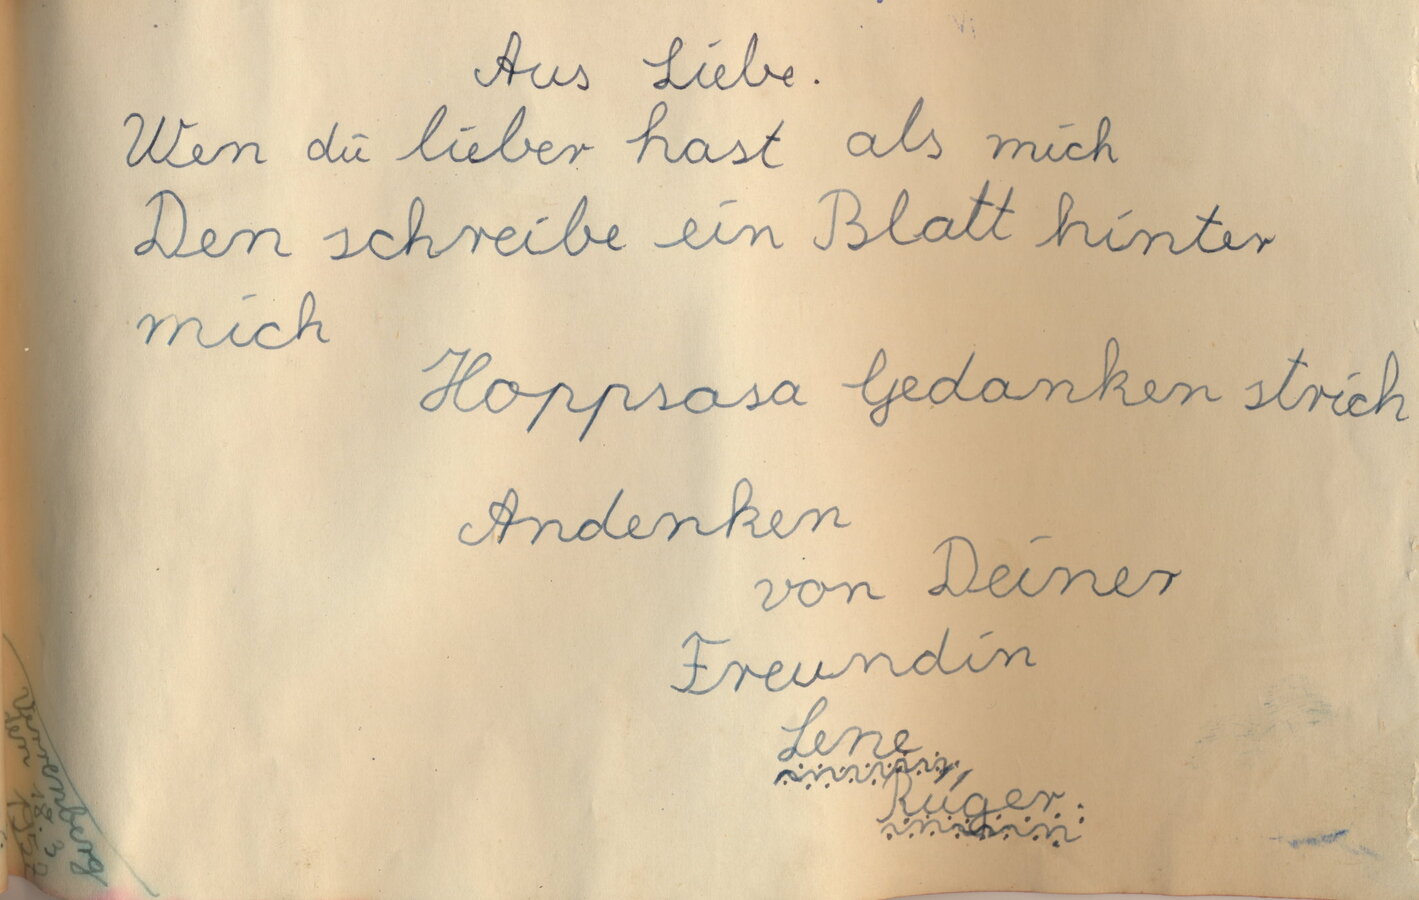 Aus Liebe.
Wen du lieber hast als mich
Den schreibe ein Blatt hinter
mich
Hoppsasa Gedankenstrich
Andenken
von Deiner
Freundin
Lene
Rüger.
18.3.